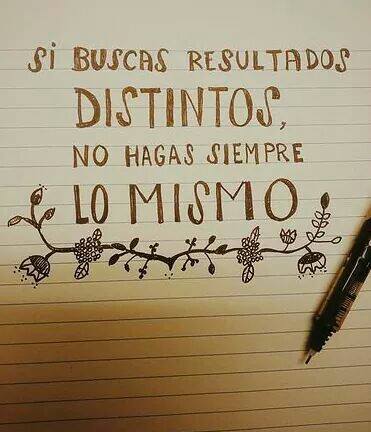 Si BUSCAS RESULTADOS
DISTINTOS,
NO HAGAS SIEMPRE
LO MISMO